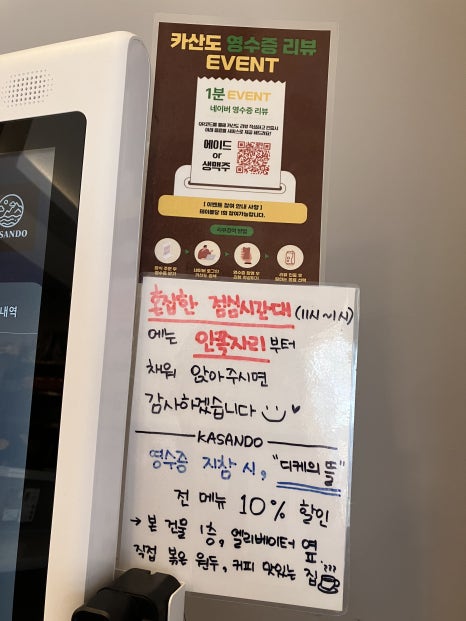 카산도 영수증 리뷰
EVENT
1분 EVENT
네이버 영수증 리뷰
에이드
or
생맥주
[ 이벤트 참여 안내 사항 ]
테이블당 1회 참여가능합니다.
KASANDO
내역
혼잡한 점심시간대 (11시~1시)
에는 안쪽자리 부터
채워 앉아주시면
감사하겠습니다
KASANDO
영수증 지참 시, "디케의 뜰"
전 메뉴 10% 할인
→ 본 건물 1층, 엘리베이터 옆
직접 볶은 원두, 커피 맛있는 집